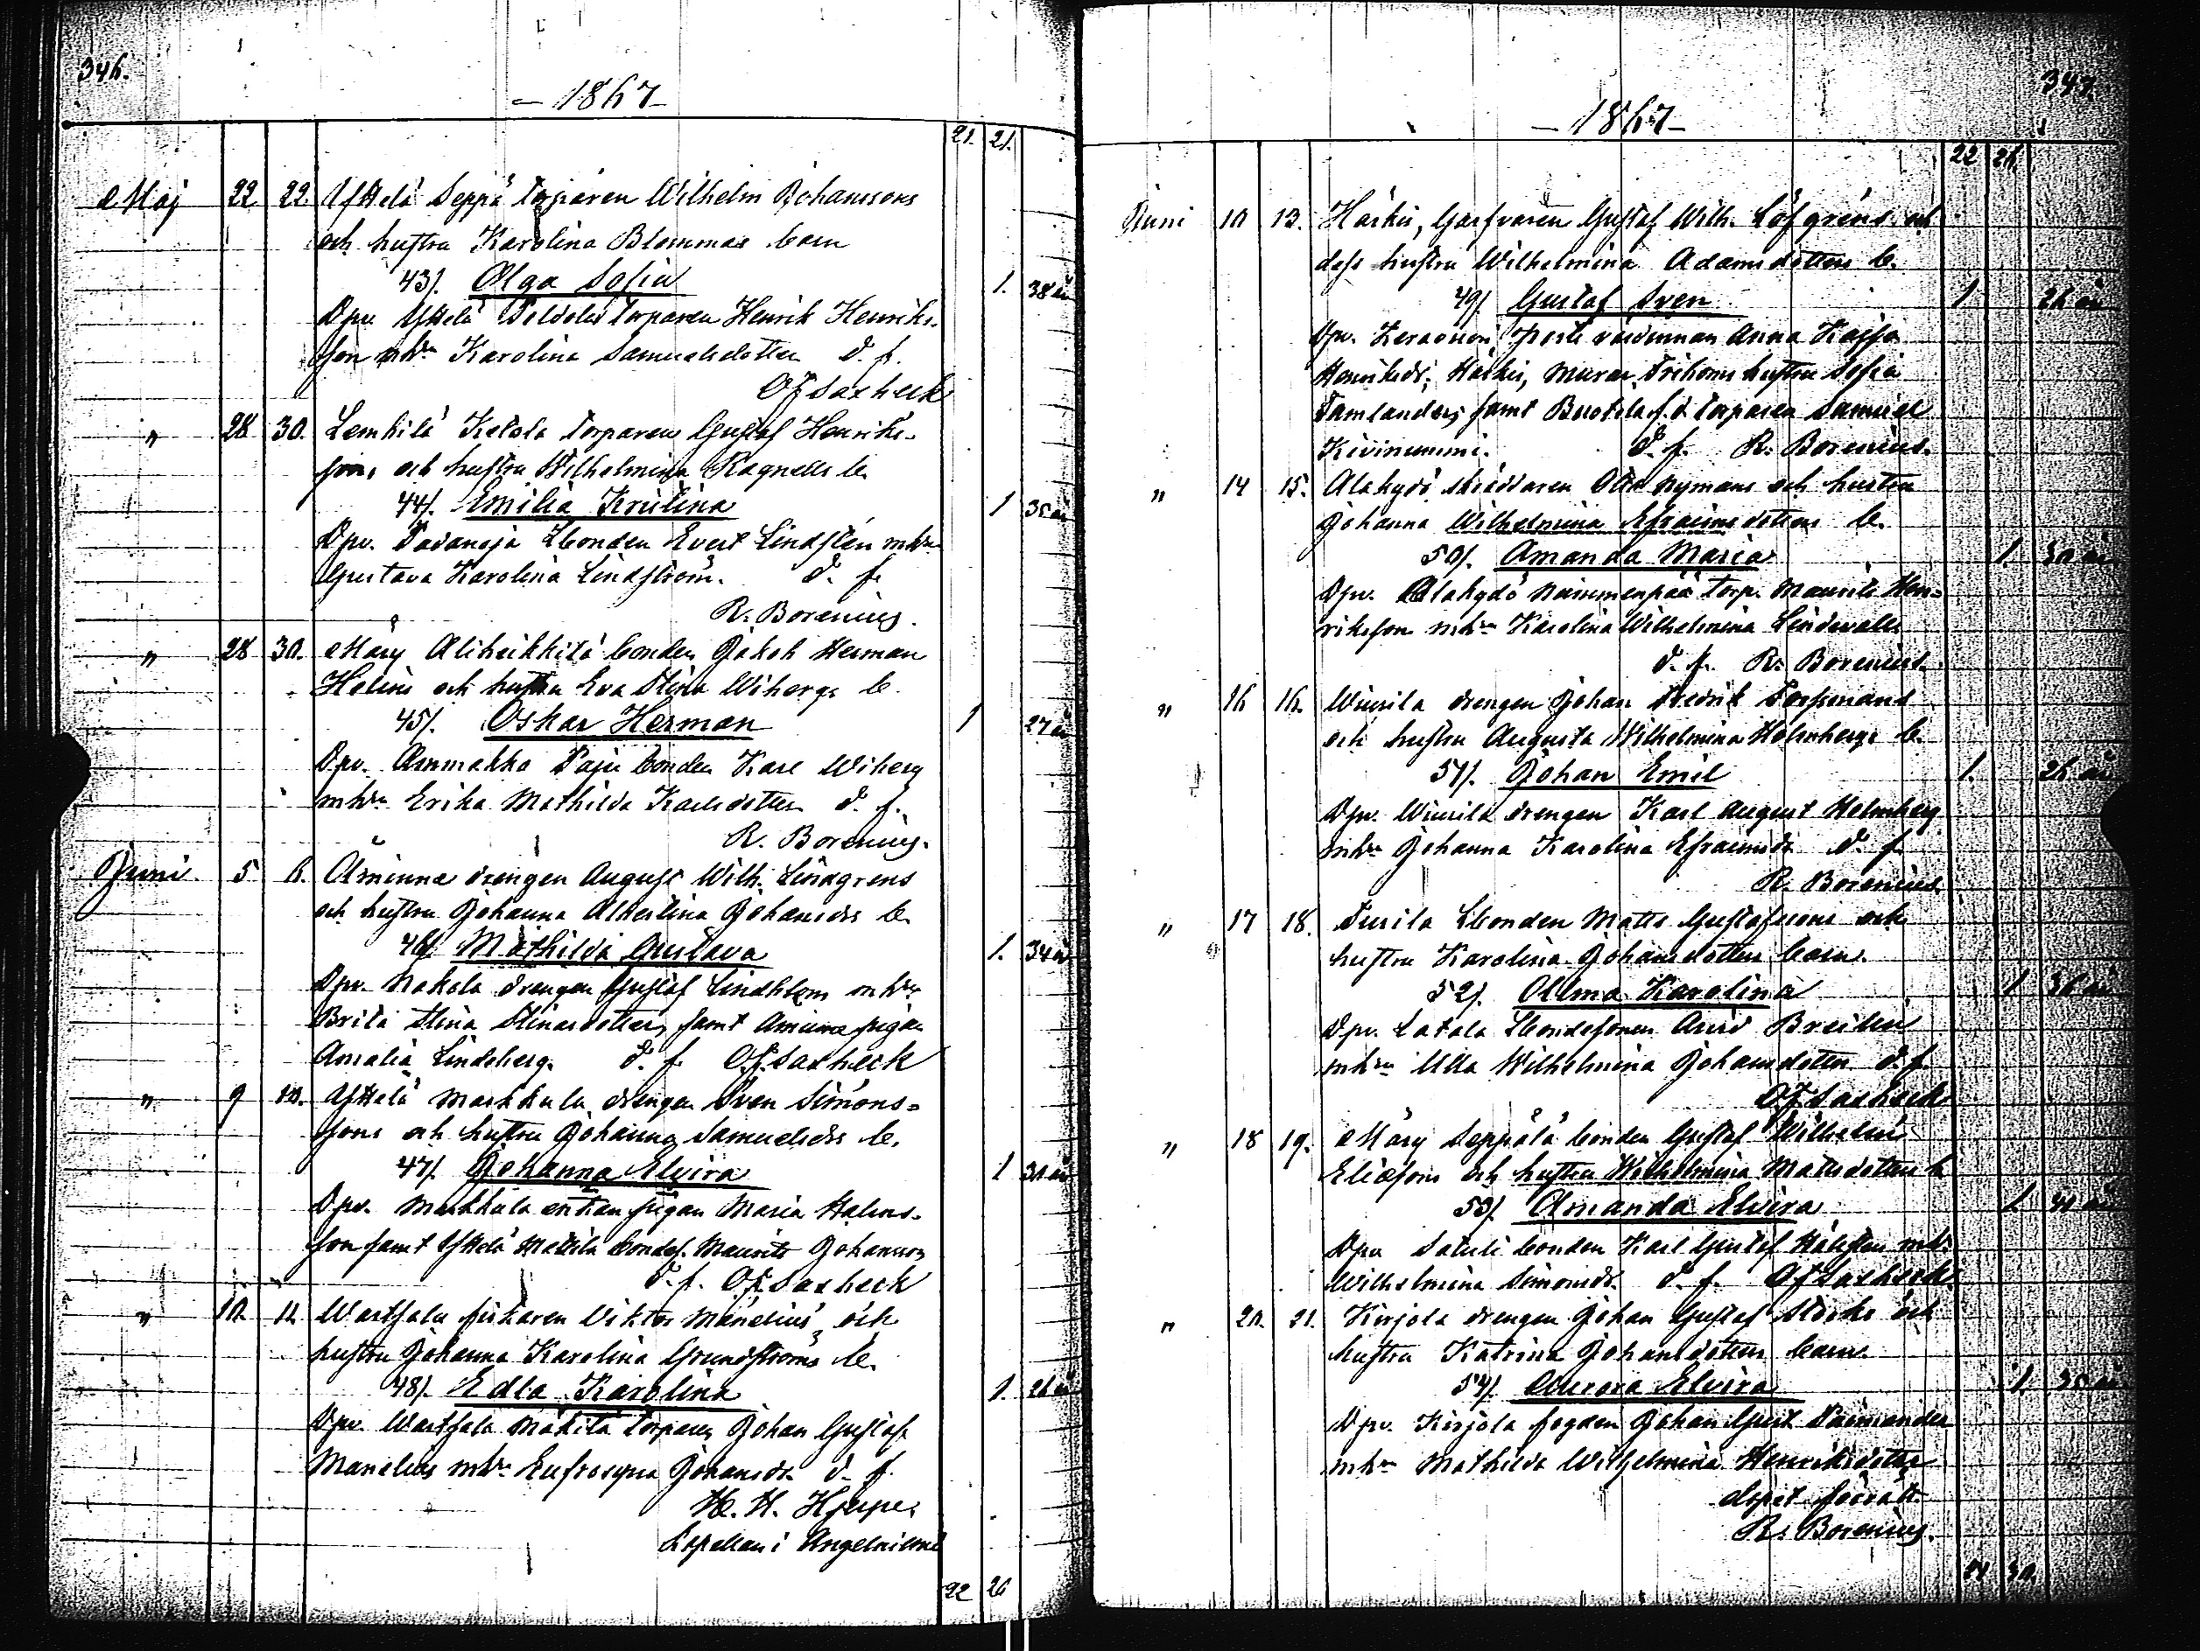 346.
– 1867 –
21. 21.
Maj 22 22. Uskelä Seppä torparen Wilhelm Johanssons
och hustru Karolina Blommas barn
43). Olga Sofia 1. 38 år
Dpv. Uskelä torparen Henrik Henriks-
son mhu Karolina Samuelsdotter d. f.
O J Saxbeck
" 28 30. Lemkilä Ketola torparen Gustaf Henriks-
sons och hustru Wilhelmina Ragnells b.
44). Emilia Kristina 1 35 år
Dpv. Lbonden Evert Lindstén mhu
Gustava Karolina Lindström. d. f.
R. Borenius.
" 28 30. Märy Aliheikkilä bonden Jakob Herman
Helins och hustru Eva Stina Wibergs b.
45). Oskar Herman 1 27 år
Dpv. Ammakko Paju bonden Karl Wiberg
mhu Erika Mathilda Karlsdotter d. f.
R. Borenius.
Juni 5 6. Åminne drengen August Wilh. Lindgrens
och hustru Johanna Albertina Johansdrs b.
46). Mathilda Gustava 1. 34 år
Dpv. Nakola drengen Gustaf Lindblom mhu
Brita Stina Stinasdotter, samt Åminne pigan
Amalia Lindeberg. d. f. O.J. Saxbeck
" 9 10. Uskelä Markkula drengen Sven Simons-
sons och hustru Johanna Samuelsdrs b.
47). Johanna Elvira 1 31 år
Dpv. Markkula enkan pigan Maria
son samt Uskelä Mattila bondes. Maurits Johansson
d. f. O.J. Saxbeck
" 10. 11. Wartsala fiskaren Viktor Manelius och
hustru Johanna Karolina Grundströms b.
48). Edla Karolina 1. 26 år
Dpv. Wartsala Mäkilä torparen Johan Gustaf
Manelius mhu Eufrosyna Johansdr d. f.
H. H. Hjerpe,
Capellan i Angelniemi
22 26
347.
– 1867 –
22 26
Juni 10 13. Härkis, Garfvaren Gustaf Wilh. Löfgrens och
dess hustru Wilhelmina Adamsdotters b.
49). Gustaf Sven 1 26 år
Dpv. värdinnan Anna Kajsa
Henriksdr, Härkis, hustru Sofia
Tamlander, samt f. d. torparen Samuel
Kivinummi. d. f. R. Borenius.
" 14 15. Alakydö skräddaren Otto Nymans och hustru
Johanna Wilhelmina Efraimsdotters b.
50). Amanda Maria 1. 30 år
Dpv. Alakydö Nummenpää torp. Maurits Hen-
riksson mhu Karolina Wilhelmina Lindevall
d. f. R. Borenius.
" 16 16. Wiurila drengen Johan Fredrik Forssmans
och hustru Augusta Wilhelmina Holmbergs b.
51). Johan Emil 1. 26 år
Dpv. Wiurila drengen Karl August Holmberg
mhu Johanna Karolina Efraimsdr d. f.
R. Borenius
" 17 18. Lbonden Matts Gustafssons och
hustru Karolina Johansdotters barn.
52). Alma Karolina 1 36 år
Dpv. Latala Lbondesonen Arvid
mhu Ulla Wilhelmina Johansdotter d. f.
O J Saxbeck
" 18 19. Märy Seppälä bonden Gustaf Wilhelm
Eliassons och hustru Wilhelmina Mattsdotters b.
53). Amanda Elvira 1. 41 år
Dpv. bonden Karl Gustaf mhu
Wilhelmina Simonsdr. d. f. O J Saxbeck
" 20. 21. Kirjola drengen Johan Gustaf och
hustru Katrina Johansdotters barn.
54). Aurora Elvira 1. 35 år
Dpv. Kirjola fogden Johan Gust.
mhu Mathilda Wilhelmina Henriksdotter
dopet förrätt.
R. Borenius.